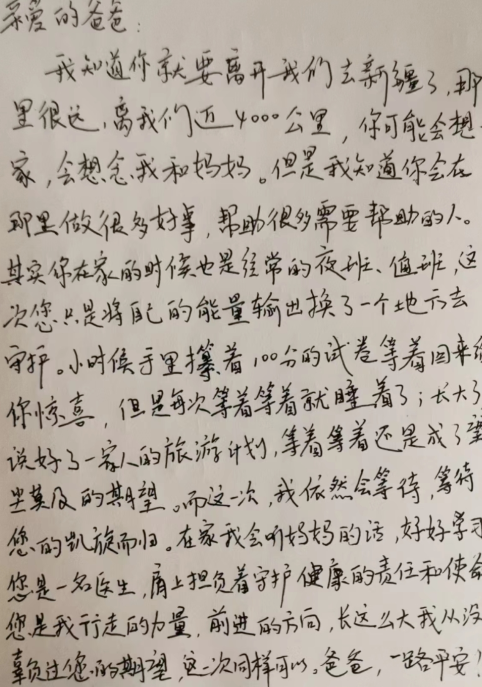 亲爱的爸爸：
我知道你就要离开我们去新疆了，那
里很远，离我们近4000公里，你可能会想
家，会想念我和妈妈。但是我知道你会在
那里做很多好事，帮助很多需要帮助的人。
其实你在家的时候也是经常的夜班、值班，这
次您只是将自己的能量输出换了一个地方去
守护。小时候手里攥着100分的试卷等着回来给
你惊喜，但是每次等着等着就睡着了；长大了
说好了一家人的旅游计划，等着等着还是成了望
尘莫及的期望。而这一次，我依然会等待，等待
您的凯旋而归。在家我会听妈妈的话，好好学习
您是一名医生，肩上担负着守护健康的责任和使命
您是我行走的力量，前进的方向，长这么大我从没
辜负过您的期望，这一次同样可以。爸爸，一路平安！